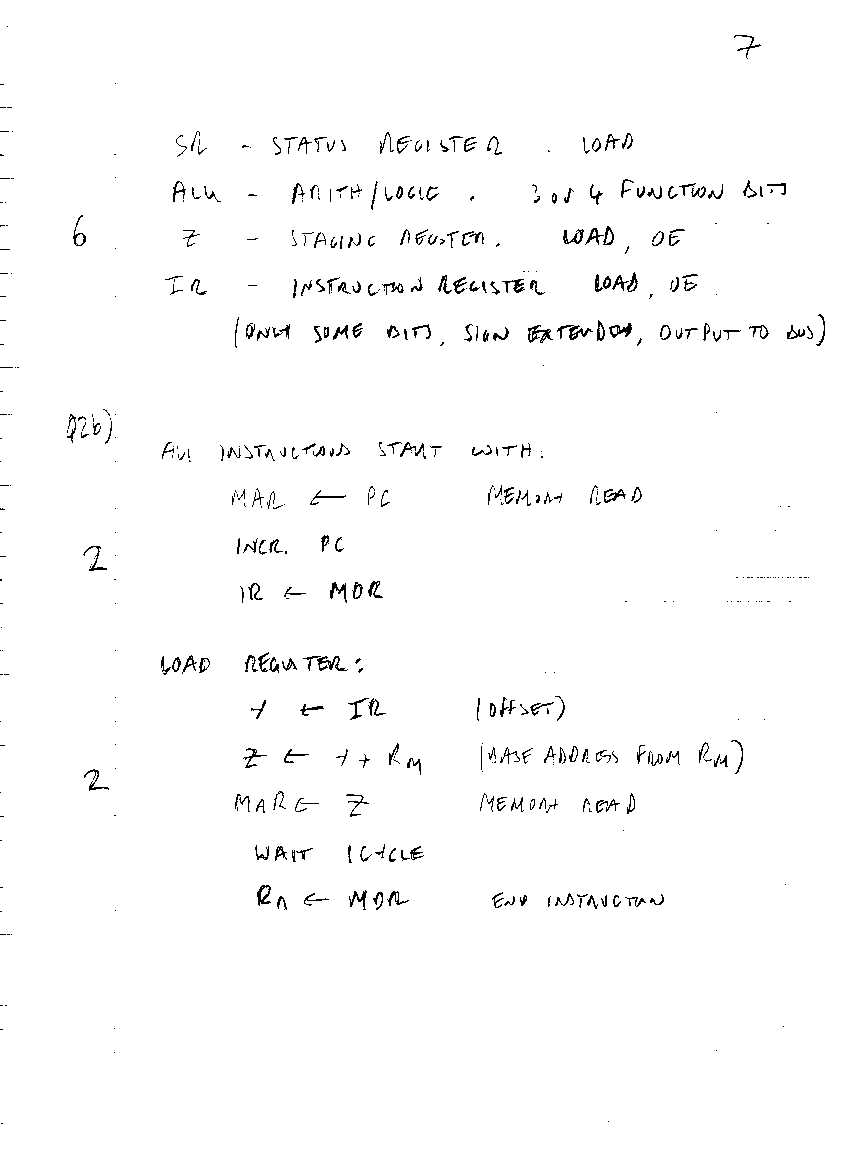 7
SR - STATUS REGISTER. LOAD
ALU - ARITH/LOGIC. 3 or 4 FUNCTION BITS
6 Z - STAGING REGISTER. LOAD, OE
IR - INSTRUCTION REGISTER LOAD, OE
(ONLY SOME BITS, SIGN EXTENDED, OUTPUT TO BUS)
Q2b)
ALL INSTRUCTIONS START WITH:
MAR ← PC MEMORY READ
2 INCR. PC
IR ← MDR
LOAD REGISTER:
Y ← IR (OFFSET)
Z ← Y + RM (BASE ADDRESS FROM RM)
2 MAR ← Z MEMORY READ
WAIT 1 CYCLE
← MDR END INSTRUCTION